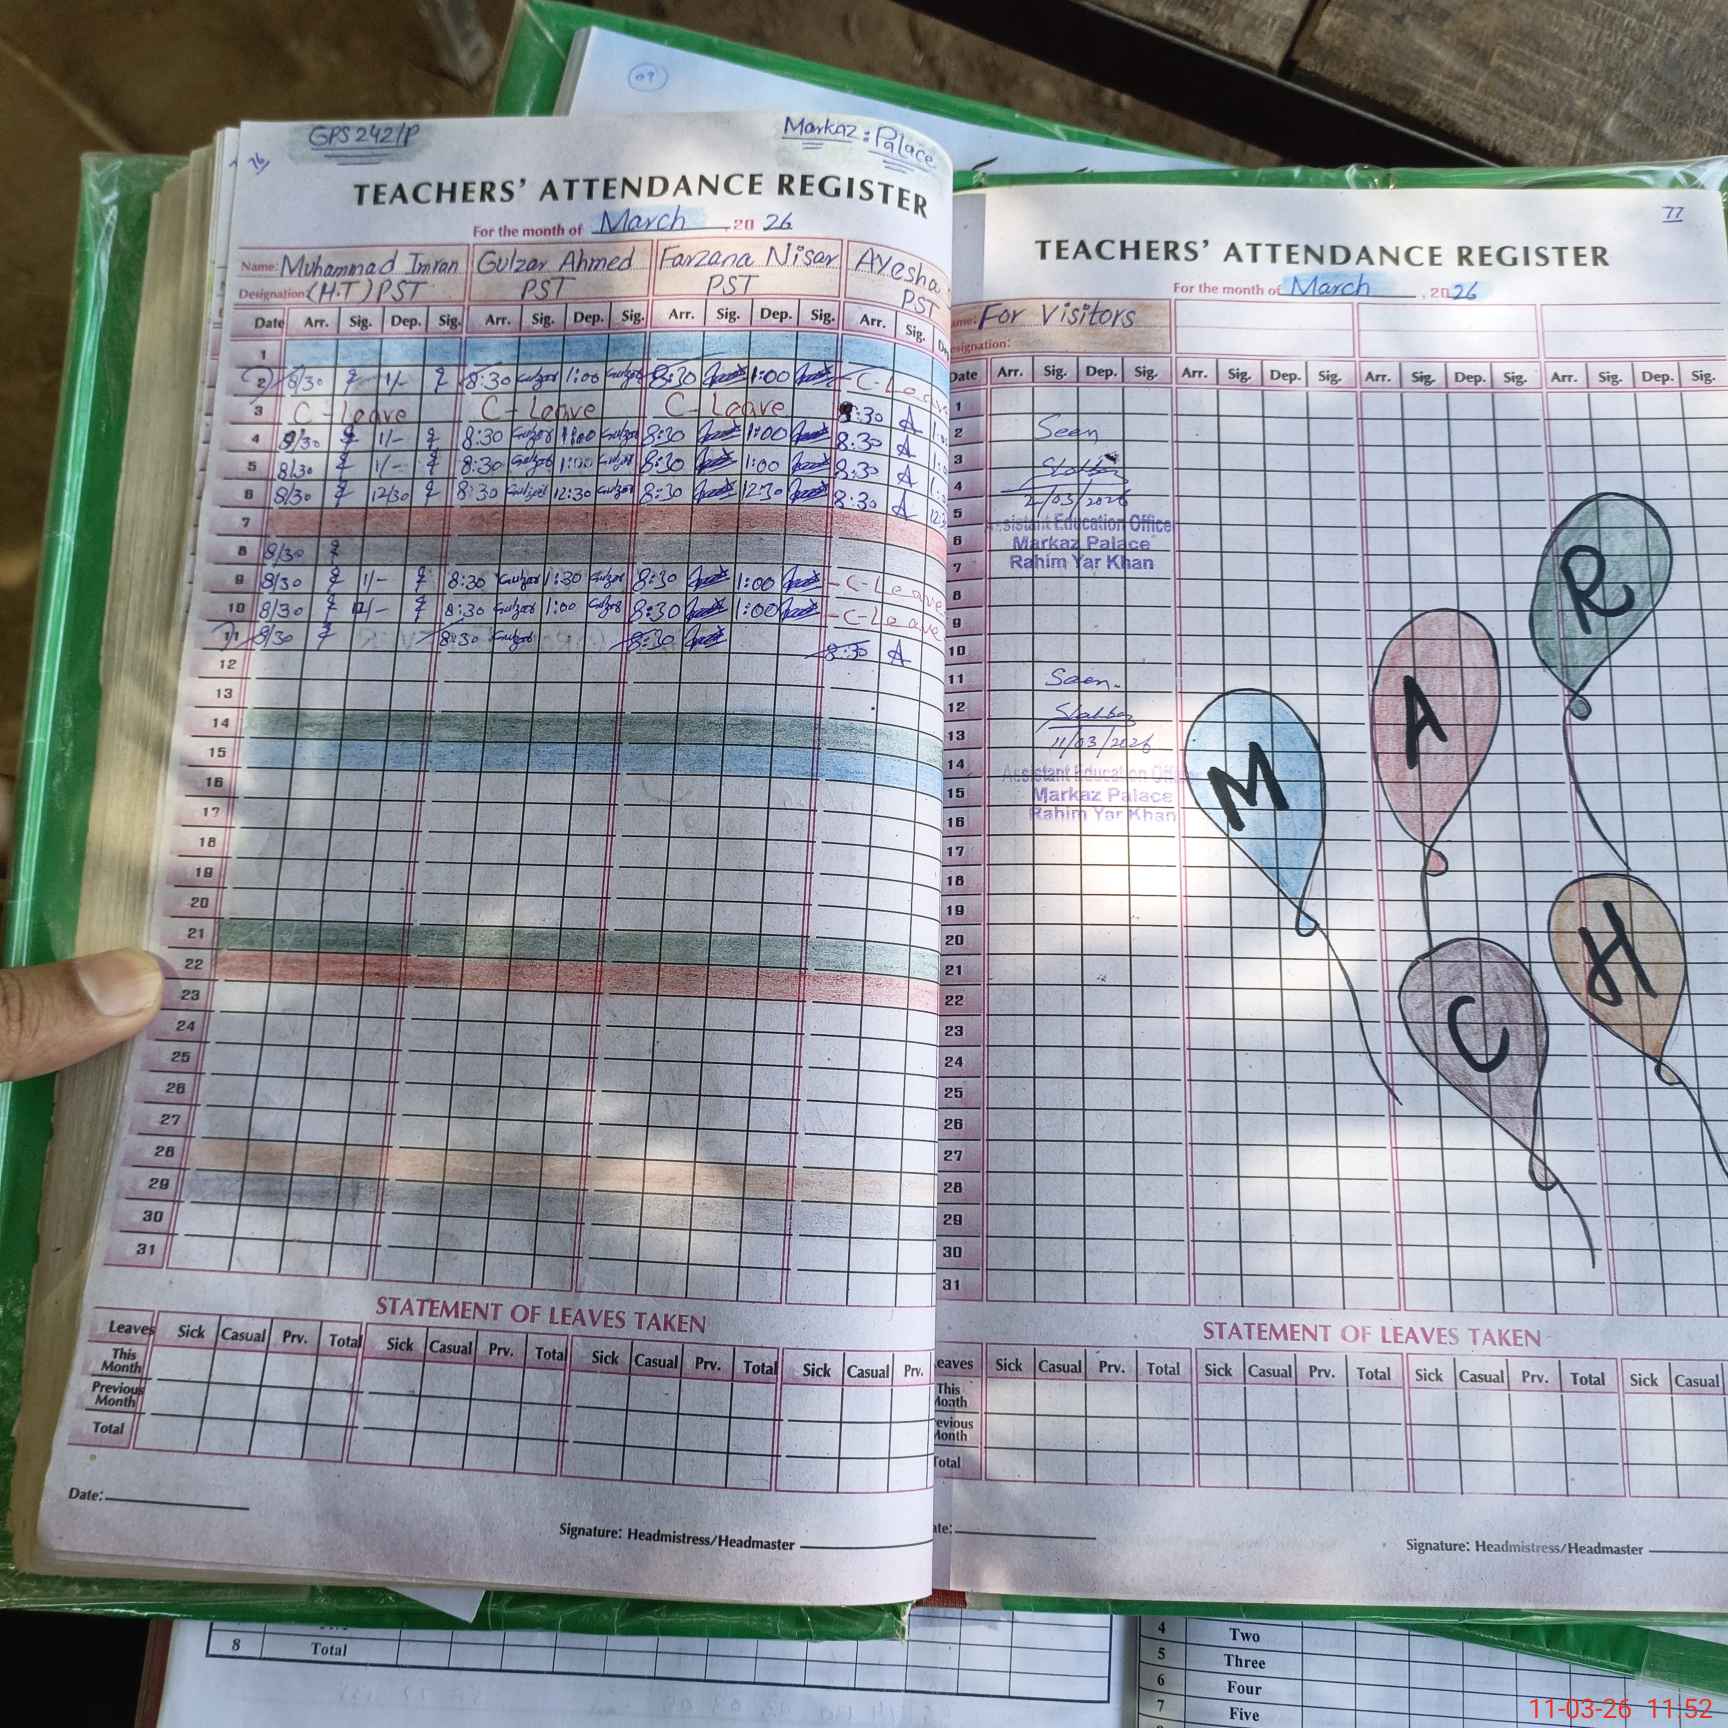 09
GPS 242/P
Markaz: Palace
76
TEACHERS' ATTENDANCE REGISTER
For the month of March 2026
Name: Muhammad Imran Gulzar Ahmed Farzana Nisar Ayesha
Designation (H.T) PST PST PST PST
Date Arr. Sig. Dep. Sig. Arr. Sig. Dep. Sig. Arr. Sig. Dep. Sig. Arr. Sig.
1
2 8/30 1/- 8:30 Gulzar 1:00 Gulzar 8:30 1:00 C-Leave
3 C-Leave C-Leave C-Leave 8:30 A
4 8/30 1/- 8:30 Gulzar 1:00 Gulzar 8:30 1:00 8:30 A
5 8/30 1/- 8:30 Gulzar 1:00 Gulzar 8:30 1:00 8:30 A
6 8/30 12/30 8:30 Gulzar 12:30 Gulzar 8:30 12:30 8:30 A
7
8 8/30
9 8/30 1/- 8:30 Gulzar 1:30 Gulzar 8:30 1:00 C-Leave
10 8/30 8:30 Gulzar 1:00 Gulzar 8:30 1:00 C-Leave
11 8/30 8:30 Gulzar 8:30 8:30 A
12
13
14
15
16
17
18
19
20
21
22
23
24
25
26
27
28
29
30
31
STATEMENT OF LEAVES TAKEN
Leaves Sick Casual Prv. Total Sick Casual Prv. Total Sick Casual Prv. Total Sick Casual Prv.
This Month
Previous Month
Total
Date:
Signature: Headmistress/Headmaster
77
TEACHERS' ATTENDANCE REGISTER
For the month of March 2026
For Visitors
Date Arr. Sig. Dep. Sig. Arr. Sig. Dep. Sig. Arr. Sig. Dep. Sig. Arr. Sig. Dep. Sig.
1
2 Seen
3
4
2/03/2026
5 Assistant Education Office
6 Markaz Palace
7 Rahim Yar Khan
8
9
10
11 Seen.
12
13 11/03/2026
14 Assistant Education Off
15 Markaz Palace
16 Rahim Yar Khan
17
18
19
20
21
22
23
24
25
26
27
28
29
30
31
M
A
R
C
H
STATEMENT OF LEAVES TAKEN
eaves Sick Casual Prv. Total Sick Casual Prv. Total Sick Casual Prv. Total Sick Casual
This Month
evious Month
Total
ate:
Signature: Headmistress/Headmaster
8 Total
4 Two
5 Three
6 Four
7 Five
11-03-26 11:52